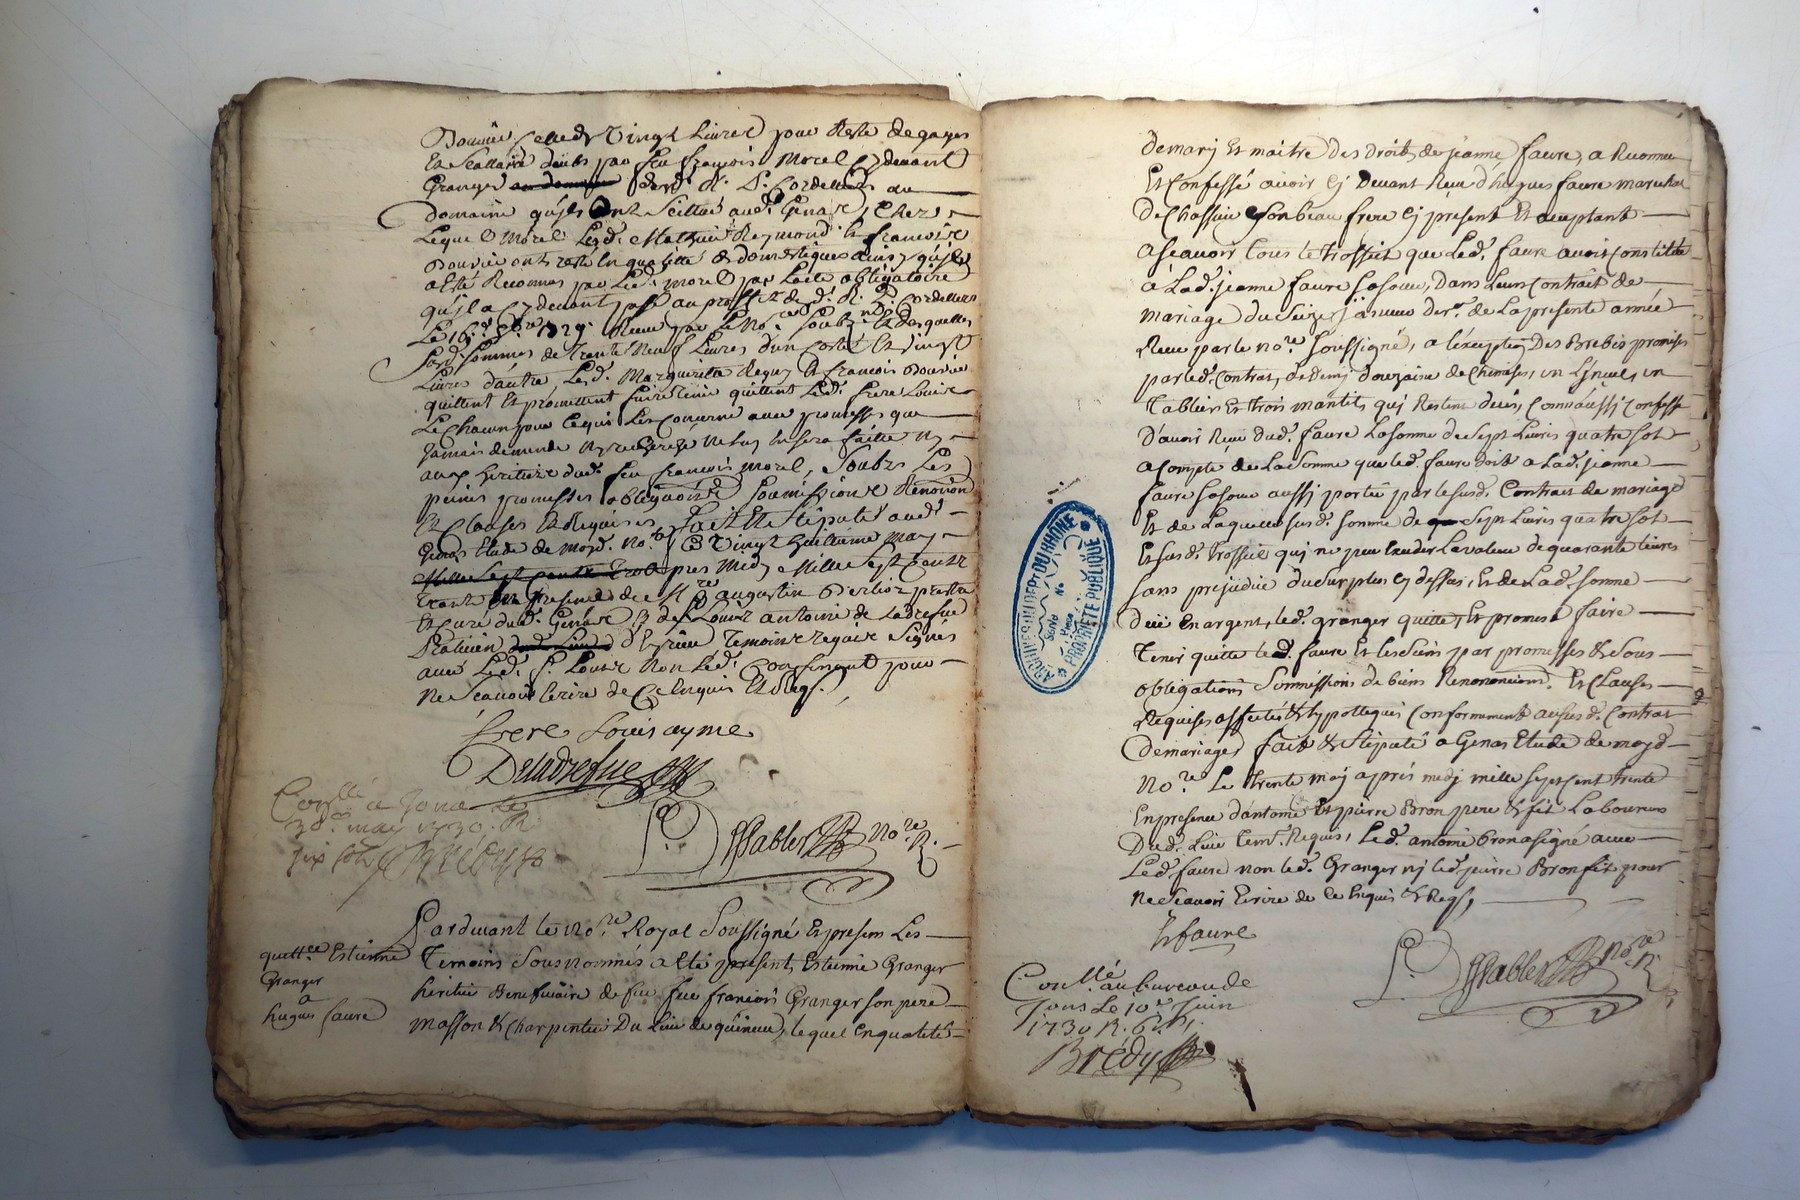 Bouvier celle de Vingt Livres pour Reste de gages
Et Sallaire deubs par feu françois Morel Cy devant
Granger desd. R. P. Cordeliers au
domaine qu'ils Ont Scittué aud. Genas, Chez
Lequel Morel Lesd. Mathieu Reymond Et françoise
Bouvier ont resté En qualitté de domestiques ainsy qu'il
a Esté Reconnu par Led. morel par Lacte obligatoire
qu'il a Cy devant passé au proffit desd. R. P. Cordeliers
Le 16e 1729 Receu par Le No.re Soubz.né Et desquelles
Sommes de Trente Neuf Livres d'un Costé Et vingt
Livres d'autre, Les d. Margueritte Reguy Et francois Bouvier
quittent Et promettent faire tenir quittent Led. frere Louis
Chacun pour Ce qui Les Concerne avec promesses que
Jamais demande Ny recherche Ne Luy En sera faitte Ny
aux heritiers dud. feu françois Morel, Soubz Les
peines promesses obligaõns Soumissions Renõnon
Et Clauses Et Requises, fait Et Stipulé aud.
Genas Etude de Moyd. No.re Ce Vingt huitieme May
Mille Sept Cents Trente apres Midy Mille Sept Cents
Trente En Presence de M.re augustin prestre
Et Curé dud. Genas, Et de S. Louis antoine de Ladrefue
Praticien Temoins requis Signés
avec Led. f. Louis Non Les d. Confessant pour
Ne Scavoir Ecrire de Ce Enquis Et Reqs.
frere Louis ayme
Deladrefue
Con.llé a Jonas Le
30e may 1730. R
six sols
P. Sablet No.re R.
Pardevant le No.re Royal Soussigné Et presens Les
quitt.ce Estienne
Granger
a
hugues faure
Temoins Sousnommés a Eté present Estienne Granger
heritier Beneficiaire de feu françois Granger son pere
Masson & Charpentier Du Lieu de lequel En qualité
de mary Et maitre Des droits de jeanne faure, a Reconnu
Et Confessé avoir Cy Devant Receu d'hugues faure marechal
de Chassieu Son beau frere Cy present Et acceptant
a Scavoir tous le trossiel que Led. faure avoit Constitué
à Lad. jeanne faure Sa Soeur, Dans Leur Contrait de
Mariage du Seize janvier der. de La presente année
Receu par le no.re Soussigné, a l'exception Des Brebis promises
par led. Contrat, de Demy douzaine de Chemises, un un
Tablier Et trois mantils qui Restent deus, Comm'aussy Confesse
D'avoir Receu dud. faure La Somme de Sept Livres quatre sols
a Compte de La Somme que led. faure doit a Lad. jeanne
faure Sa Soeur aussi portée par le susd. Contrait de mariage
Et de Laquelle susd. Somme de Sept Livres quatre sols
Et susd. trossiel qui ne peu Exceder La valeur de quarante Livres
sans prejudice du Surplus Cy dessus, Et de Lad. Somme
deüe En argent, led. granger quitte, Et promet faire
Tenir quitte led. faure Et les Siens par promesses & Sous
obligations Sommissions de biens Renonciaons, Et Clauses
Requises affectés & hypotteques Conformement au susd. Contrat
de mariage, fait & Stipulé a Genas Etude de moyd.
No.re Le trente may apres midy mille sept cent trente
En presence d'antoine Et pierre Bron pere & fils Laboureurs
Dud. Lieu tem. Requis, Led. antoine Bron a signé avec
Led. faure non led. Granger ny led. pierre Bron fils pour
Ne Scavoir Ecrire de Ce Enquis & Reqs,
h faure
P. Sablet No.re R.
Con.llé au bureau de
Jons Le 10e Juin
1730 R. 6 s.
Brédy
ARCHIVES DU DEPt DU RHÔNE
PROPRIÉTÉ PUBLIQUE